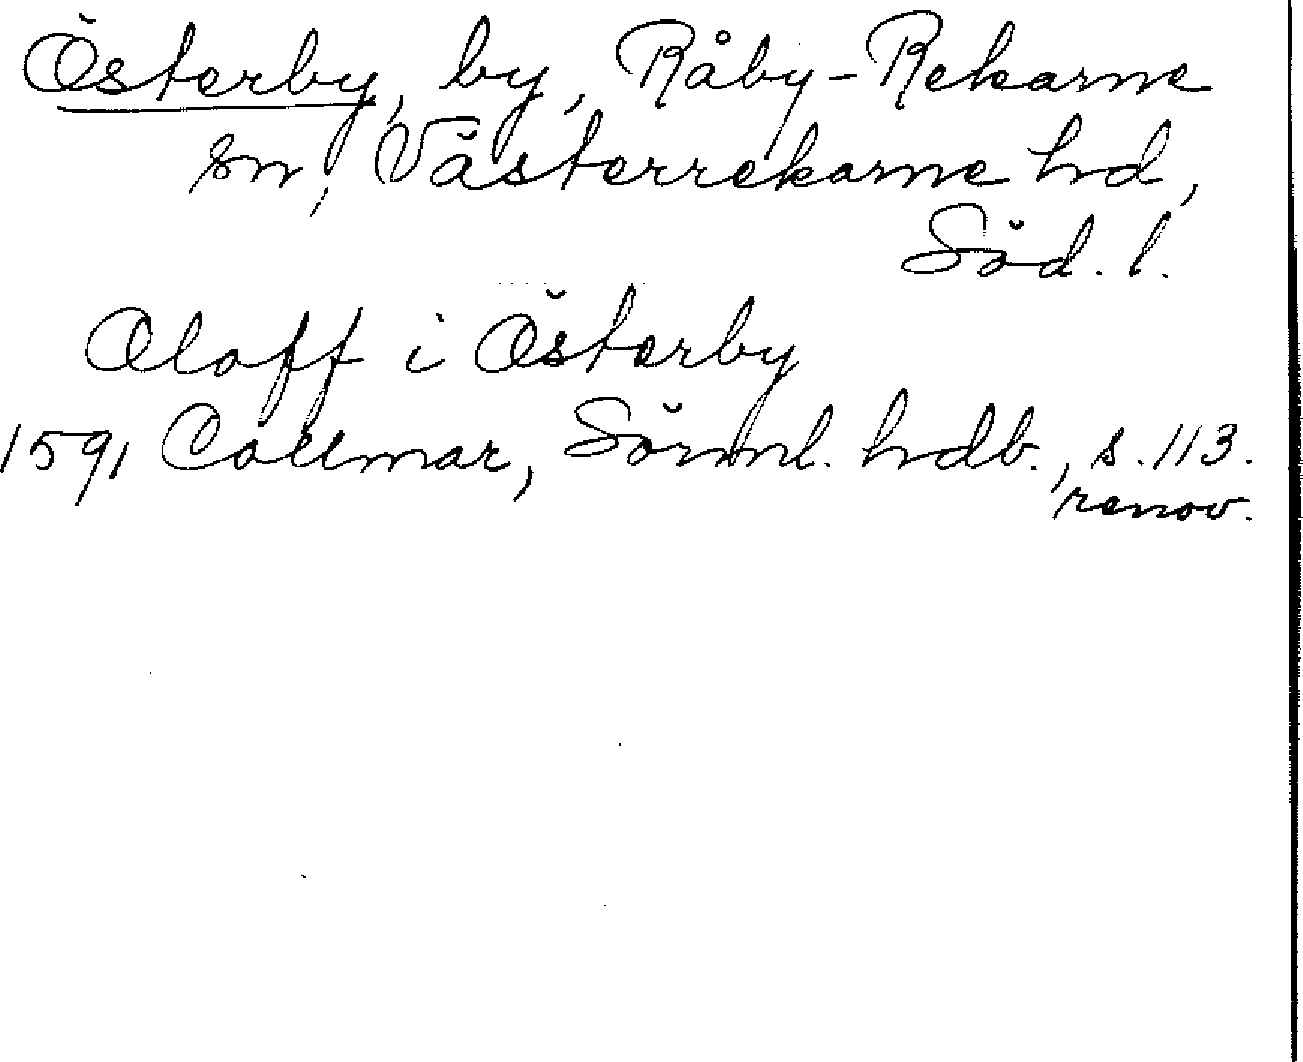 Österby, by, Råby-Rekarne
sn, Västerrekarne hd,
Söd. l.
Oloff i Österby
1591 Collmar, Sörml. hdb., s. 113.
renov.